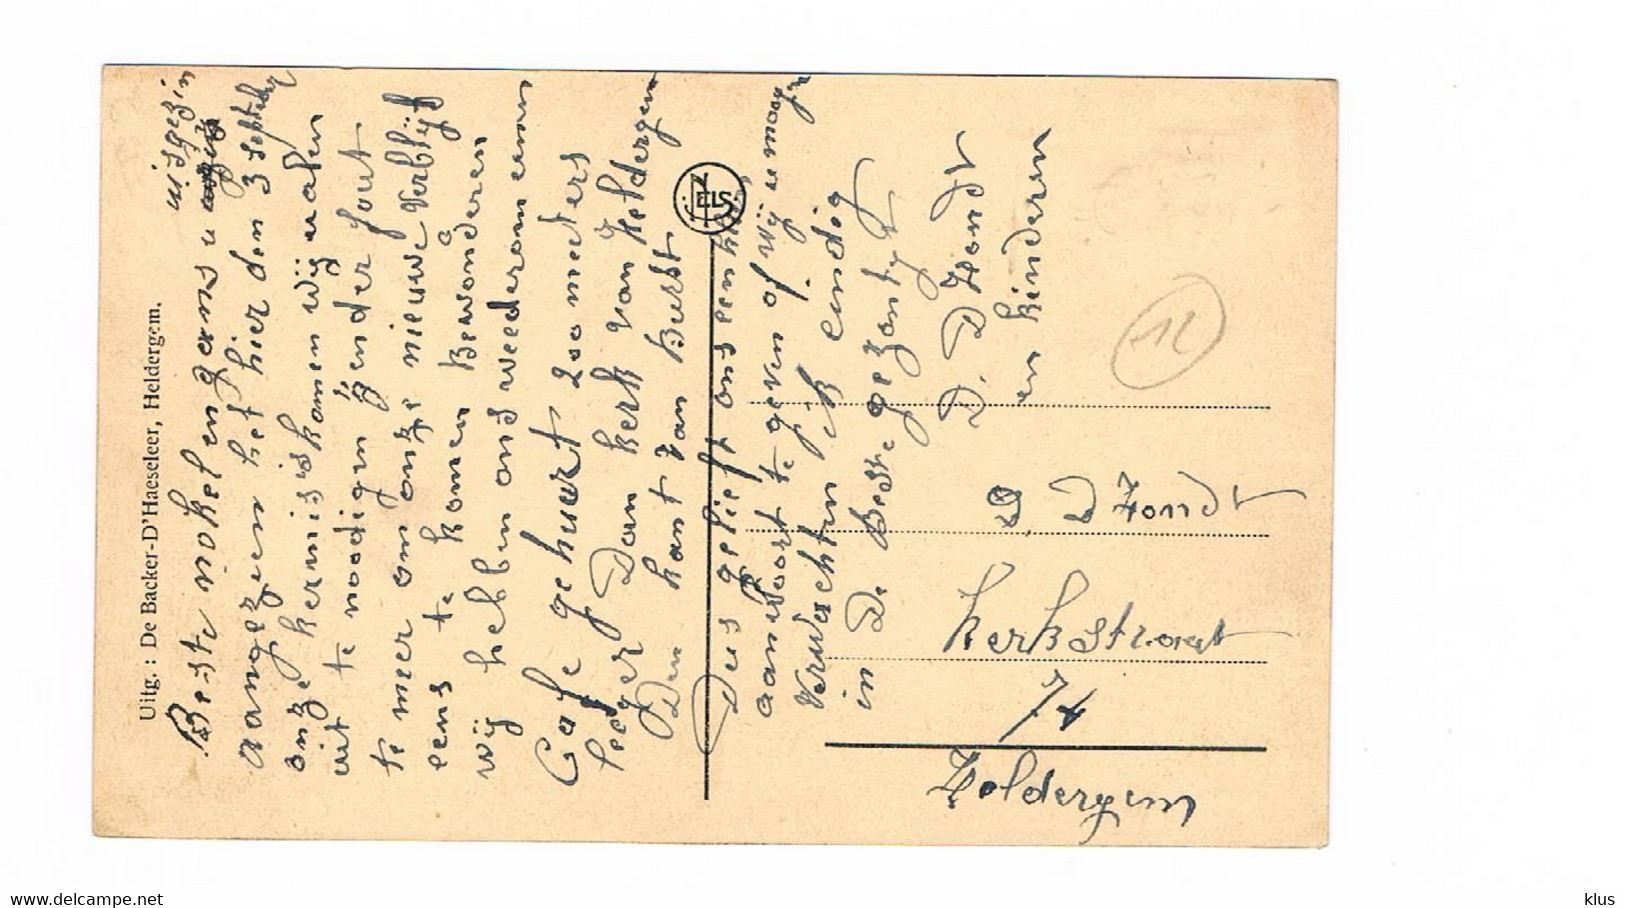 Uitg. : De Backer-D'Haeseleer, Heldergem.
Beste nokel en gans u
uisgezin
aangezien het hier den 3 september
onze kermis is komen wij u alen
uit te noodigen ginder fout
te meer om onze nieuwe verblijf
eens te komen Bewonderen
wij hebben ons weederom eenen
Cafe gehuert 200 meeters
leeger Dan kerk van Heldergem
Den kant van Burst
Dus gelieft ons een klein
aantwoort te geven of wij u moogen
Verwachten ik endig
in De Beste gezontyt
D. D Hondt
en kinderen
NELS
12
D D Hondt
Kerkstraat
74
Heldergem
klus
www.delcampe.net